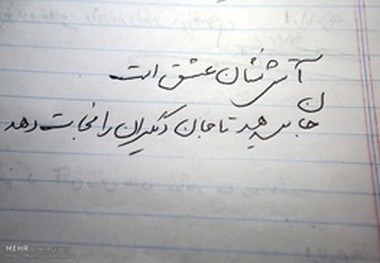 آتش نشان عشق است
جان می‌دهد تا جان دیگران را نجات دهد
MEHR